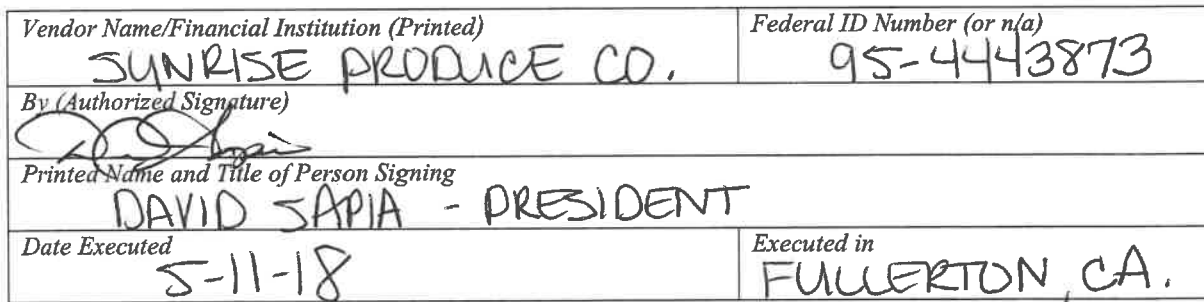 Vendor Name/Financial Institution (Printed)
SUNRISE PRODUCE CO.
Federal ID Number (or n/a)
95-4443873
By (Authorized Signature)
Printed Name and Title of Person Signing
DAVID SAPIA - PRESIDENT
Date Executed
5-11-18
Executed in
FULLERTON, CA.